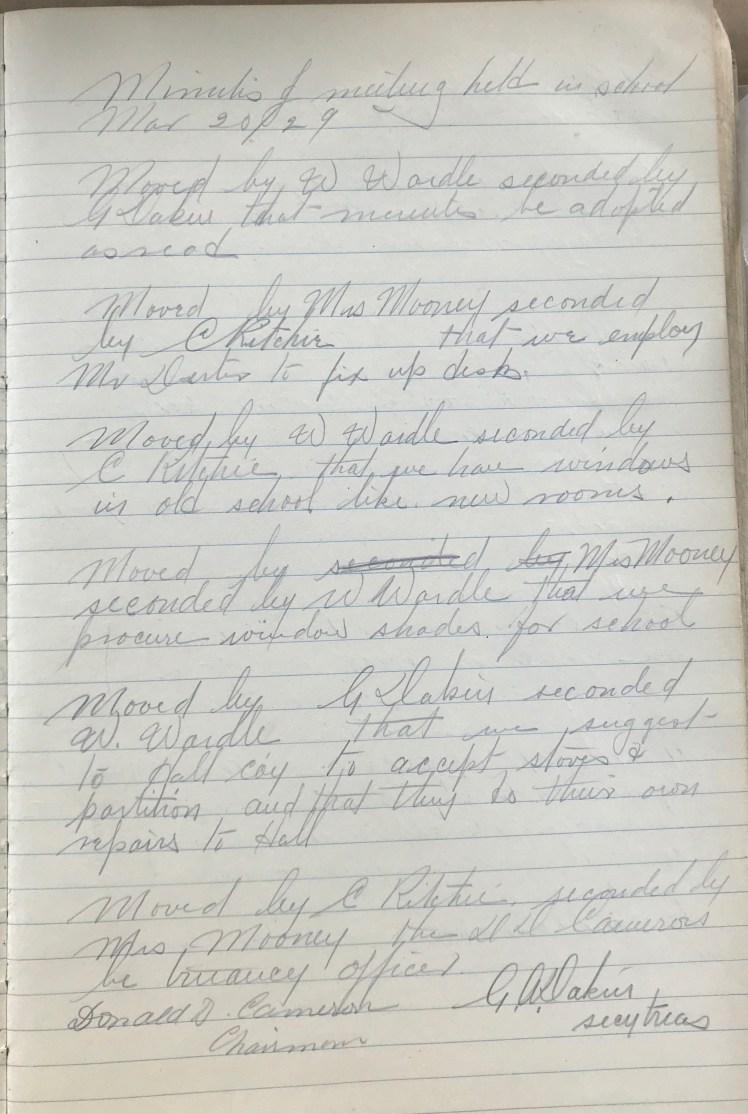 Minutes of meeting held in school
Mar 20/29
Moved by W Wardle seconded by
G Dakin that minutes be adopted
as read
Moved by Mrs Mooney seconded
by C Ritchie that we employ
Mr to fix up desks.
Moved by W Wardle seconded by
C Ritchie that we have windows
in old school like new rooms.
Moved by seconded by Mrs Mooney
seconded by W Wardle that we
procure window shades for school
Moved by G Dakin seconded
W. Wardle that we suggest
to Hall coy to accept stoves &
partition and that they do their own
repairs to Hall
Moved by C Ritchie seconded by
Mrs Mooney the D D Cameron
be truancy officer.
Donald D. Cameron G Dakin
Chairman secy treas